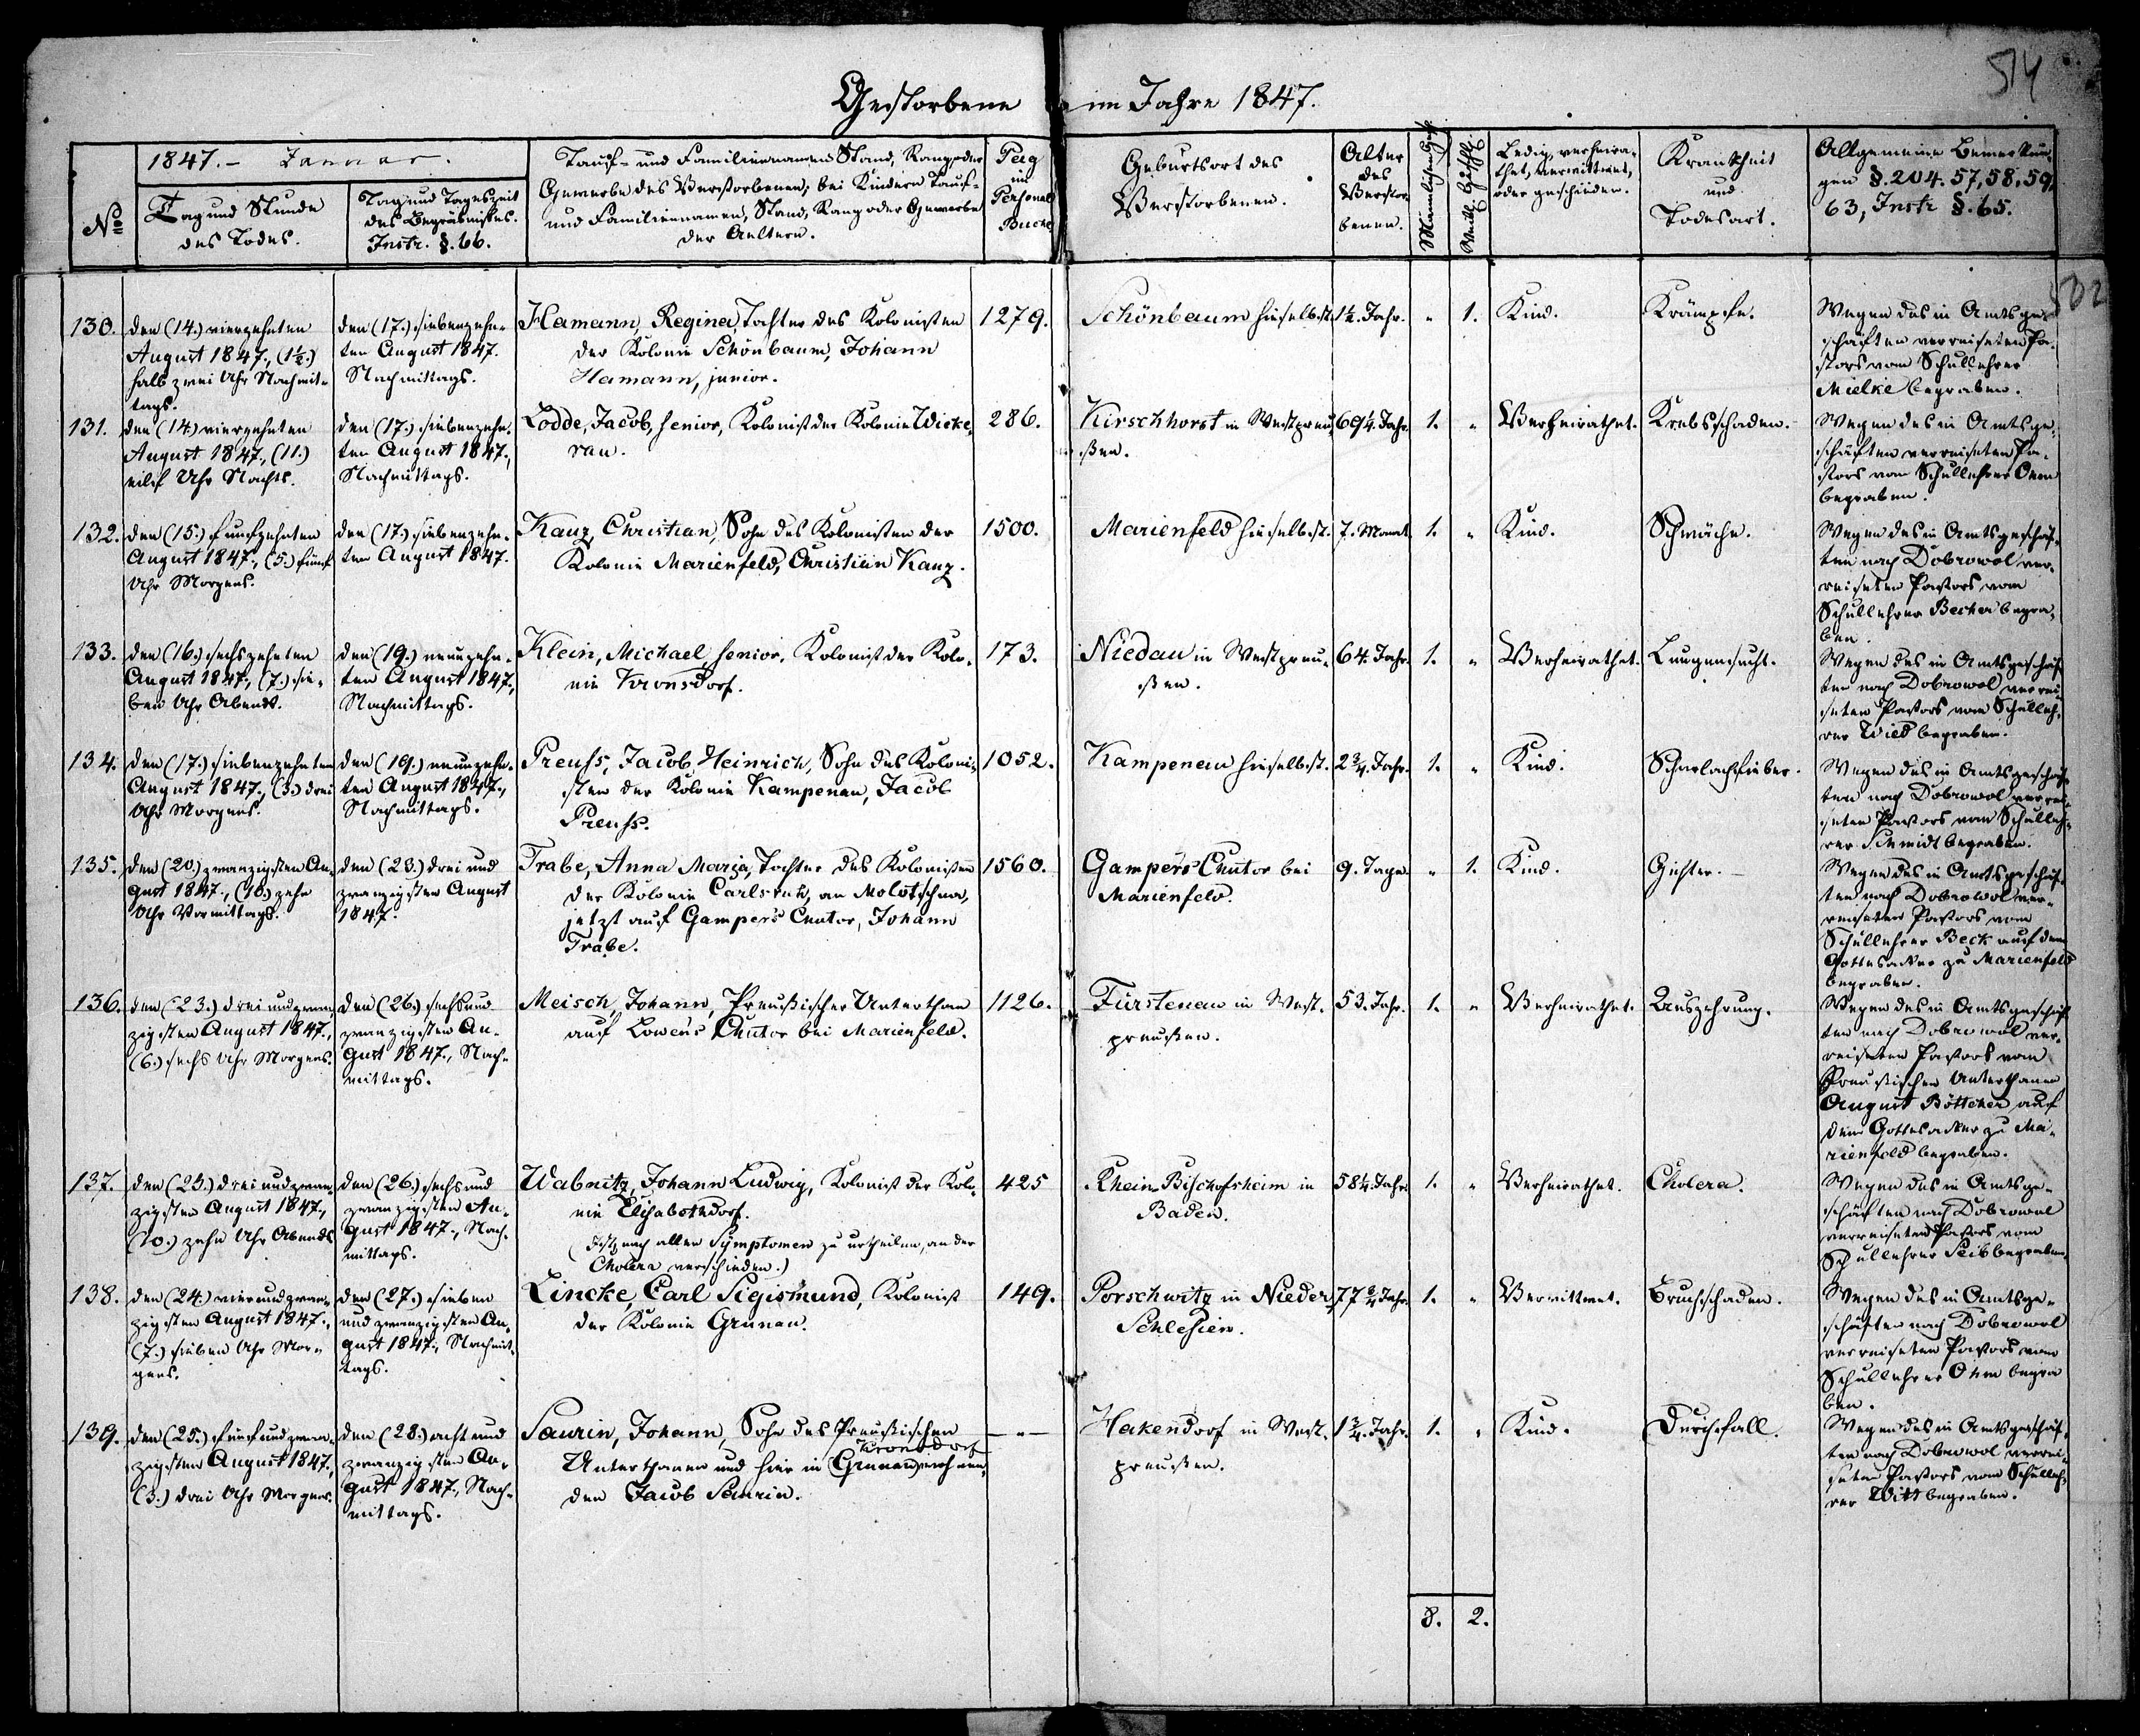 514
Gestorbene im Jahre 1847.
No
1847. - Januar.
Tag und Stunde
des Todes.
Tag und Tageszeit
des Begräbnißes.
Instr. §. 66.
Tauf- und Familiennamen Stand, Rang oder
Gewerbe des Verstorbenen, bei Kindern Tauf-
und Familiennamen, Stand, Rang oder Gewerbe
der Aeltern.
Pag
im
Personal
Buche
Geburtsort des
Verstorbenen.
Alter
des
Verstor-
benen.
Männlichen Gesch.
Weibl. Geschl.
Ledig, verheira-
thet, verwittwet,
oder geschieden.
Krankheit
und
Todesart.
Allgemeine Bemerkun-
gen §. 204. 57, 58, 59,
63, Instr §. 65.
532
130.
den (14.) vierzehnten
August 1847., (1½.)
halb zwei Uhr Nachmit-
tags.
den (17.) siebenzehn-
ten August 1847.
Nachmittags.
Hamann, Regina, Tochter des Kolonisten
der Kolonie Schönbaum, Johann
Hamann, junior.
1279.
Schönbaum hieselbst.
1½. Jahr.
"
1.
Kind.
Krämpfe.
Wegen des in Amtsge-
schäften verreiseten Pa-
stors vom Schullehrer
Mielke begraben.
131.
den (14.) vierzehnten
August 1847., (11.)
eilf Uhr Nachts.
den (17.) siebenzehn-
ten August 1847.,
Nachmittags.
Lodde, Jacob, senior, Kolonist der Kolonie Wicke-
rau.
286.
Kirschhorst in Westpreu-
ßen.
69¼. Jahr.
1.
"
Verheirathet.
Krebsschaden.
Wegen des in Amtsge-
schäften verreiseten Pa-
stors vom Schullehrer Ohm
begraben.
132.
den (15.) funfzehnten
August 1847., (5.) fünf
Uhr Morgens.
den (17.) siebenzehn-
ten August 1847.
Kanz, Christian, Sohn des Kolonisten der
Kolonie Marienfeld, Christian Kanz.
1500.
Marienfeld hieselbst.
7. Monat
1.
"
Kind.
Schwäche.
Wegen des in Amtsgeschäf-
ten nach Dobrowol ver-
reiseten Pastors vom
Schullehrer Becker begra-
ben.
133.
den (16.) sechszehnten
August 1847., (7.) sie-
ben Uhr Abends.
den (19.) neunzehn-
ten August 1847.,
Nachmittags.
Klein, Michael, senior, Kolonist der Kolo-
nie Kronsdorf.
173.
Niedau in Westpreu-
ßen.
64. Jahr.
1.
"
Verheirathet.
Lungensucht.
Wegen des in Amtsgeschäf-
ten nach Dobrowol verrei-
seten Pastors vom Schulleh-
rer Wied begraben.
134.
den (17.) siebenzehnten
August 1847., (3.) drei
Uhr Morgens.
den (19.) neunzehn-
ten August 1847.,
Nachmittags.
Preuß, Jacob Heinrich, Sohn des Koloni-
sten der Kolonie Kampenau, Jacob
Preuß.
1052.
Kampenau hieselbst.
2¾. Jahr.
1.
"
Kind.
Scharlachfieber.
Wegen des in Amtsgeschäf-
ten nach Dobrowol verrei-
seten Pastors vom Schulleh-
rer Schmidt begraben.
135.
den (20.) zwanzigsten Au-
gust 1847., (10.) zehn
Uhr Vormittags.
den (23.) drei und
zwanzigsten August
1847.
Trabe, Anna Maria, Tochter des Kolonisten
der Kolonie Carlsruh, an Molotschna,
jetzt auf Gampers Chutor, Johann
Trabe.
1560.
Gampers Chutor bei
Marienfeld.
9. Tage.
"
1.
Kind.
Gichter.
Wegen des in Amtsgeschäf-
ten nach Dobrowol ver-
reiseten Pastors vom
Schullehrer Beck auf dem
Gottesacker zu Marienfeld
begraben.
136.
den (23.) drei und zwan-
zigsten August 1847.,
(6.) sechs Uhr Morgens.
den (26.) sechs und
zwanzigsten Au-
gust 1847., Nach-
mittags.
Meisch, Johann, Preußischer Unterthan
auf Lowens Chutor bei Marienfeld.
1126.
Fürstenau in West-
preußen.
53. Jahr.
1.
"
Verheirathet.
Auszehrung.
Wegen des in Amtsgeschäf-
ten nach Dobrowol ver-
reiseten Pastors vom
Preußischen Unterthanen
August Böttcher auf
dem Gottesacker zu Ma-
rienfeld begraben.
137.
den (23.) drei und zwan-
zigsten August 1847.,
(10.) zehn Uhr Abends
den (26.) sechs und
zwanzigsten Au-
gust 1847., Nach-
mittags.
Wabnitz, Johann Ludwig, Kolonist der Kolo-
nie Elisabethdorf.
(Ist nach allen Symptomen zu urtheilen, an der
Cholera verschieden.)
425
Rhein-Bischofsheim in
Baden.
58¼. Jahr
1.
"
Verheirathet.
Cholera.
Wegen des in Amtsge-
schäften nach Dobrowol
verreiseten Pastors vom
Schullehrer Seib begraben.
138.
den (24.) vier und zwan-
zigsten August 1847.,
(7.) sieben Uhr Mor-
gens.
den (27.) sieben
und zwanzigsten Au-
gust 1847., Nachmit-
tags.
Lincke, Carl Sigismund, Kolonist
der Kolonie Grunau.
149.
Porschwitz in Nieder-
Schlesien.
77¾ Jahr.
1.
"
Verwittwet.
Bruchschaden.
Wegen des in Amtsge-
schäften nach Dobrowol
verreiseten Pastors vom
Schullehrer Ohm begra
ben.
139.
den (25.) fünf und zwan-
zigsten August 1847.,
(3.) drei Uhr Morgens.
den (28.) acht und
zwanzigsten Au-
gust 1847., Nach-
mittags.
Saurin, Johann, Sohn des Preußischen
Kronsdorf
Unterthanen und hier in (Grunau) wohnen-
den Jacob Saurin.
—"—
Hakendorf in West-
preußen.
1¾. Jahr.
1.
"
Kind.
Durchfall.
Wegen des in Amtsgeschäf-
ten nach Dobrowol verrei-
seten Pastors vom Schulleh-
rer Witt begraben.
8. 2.